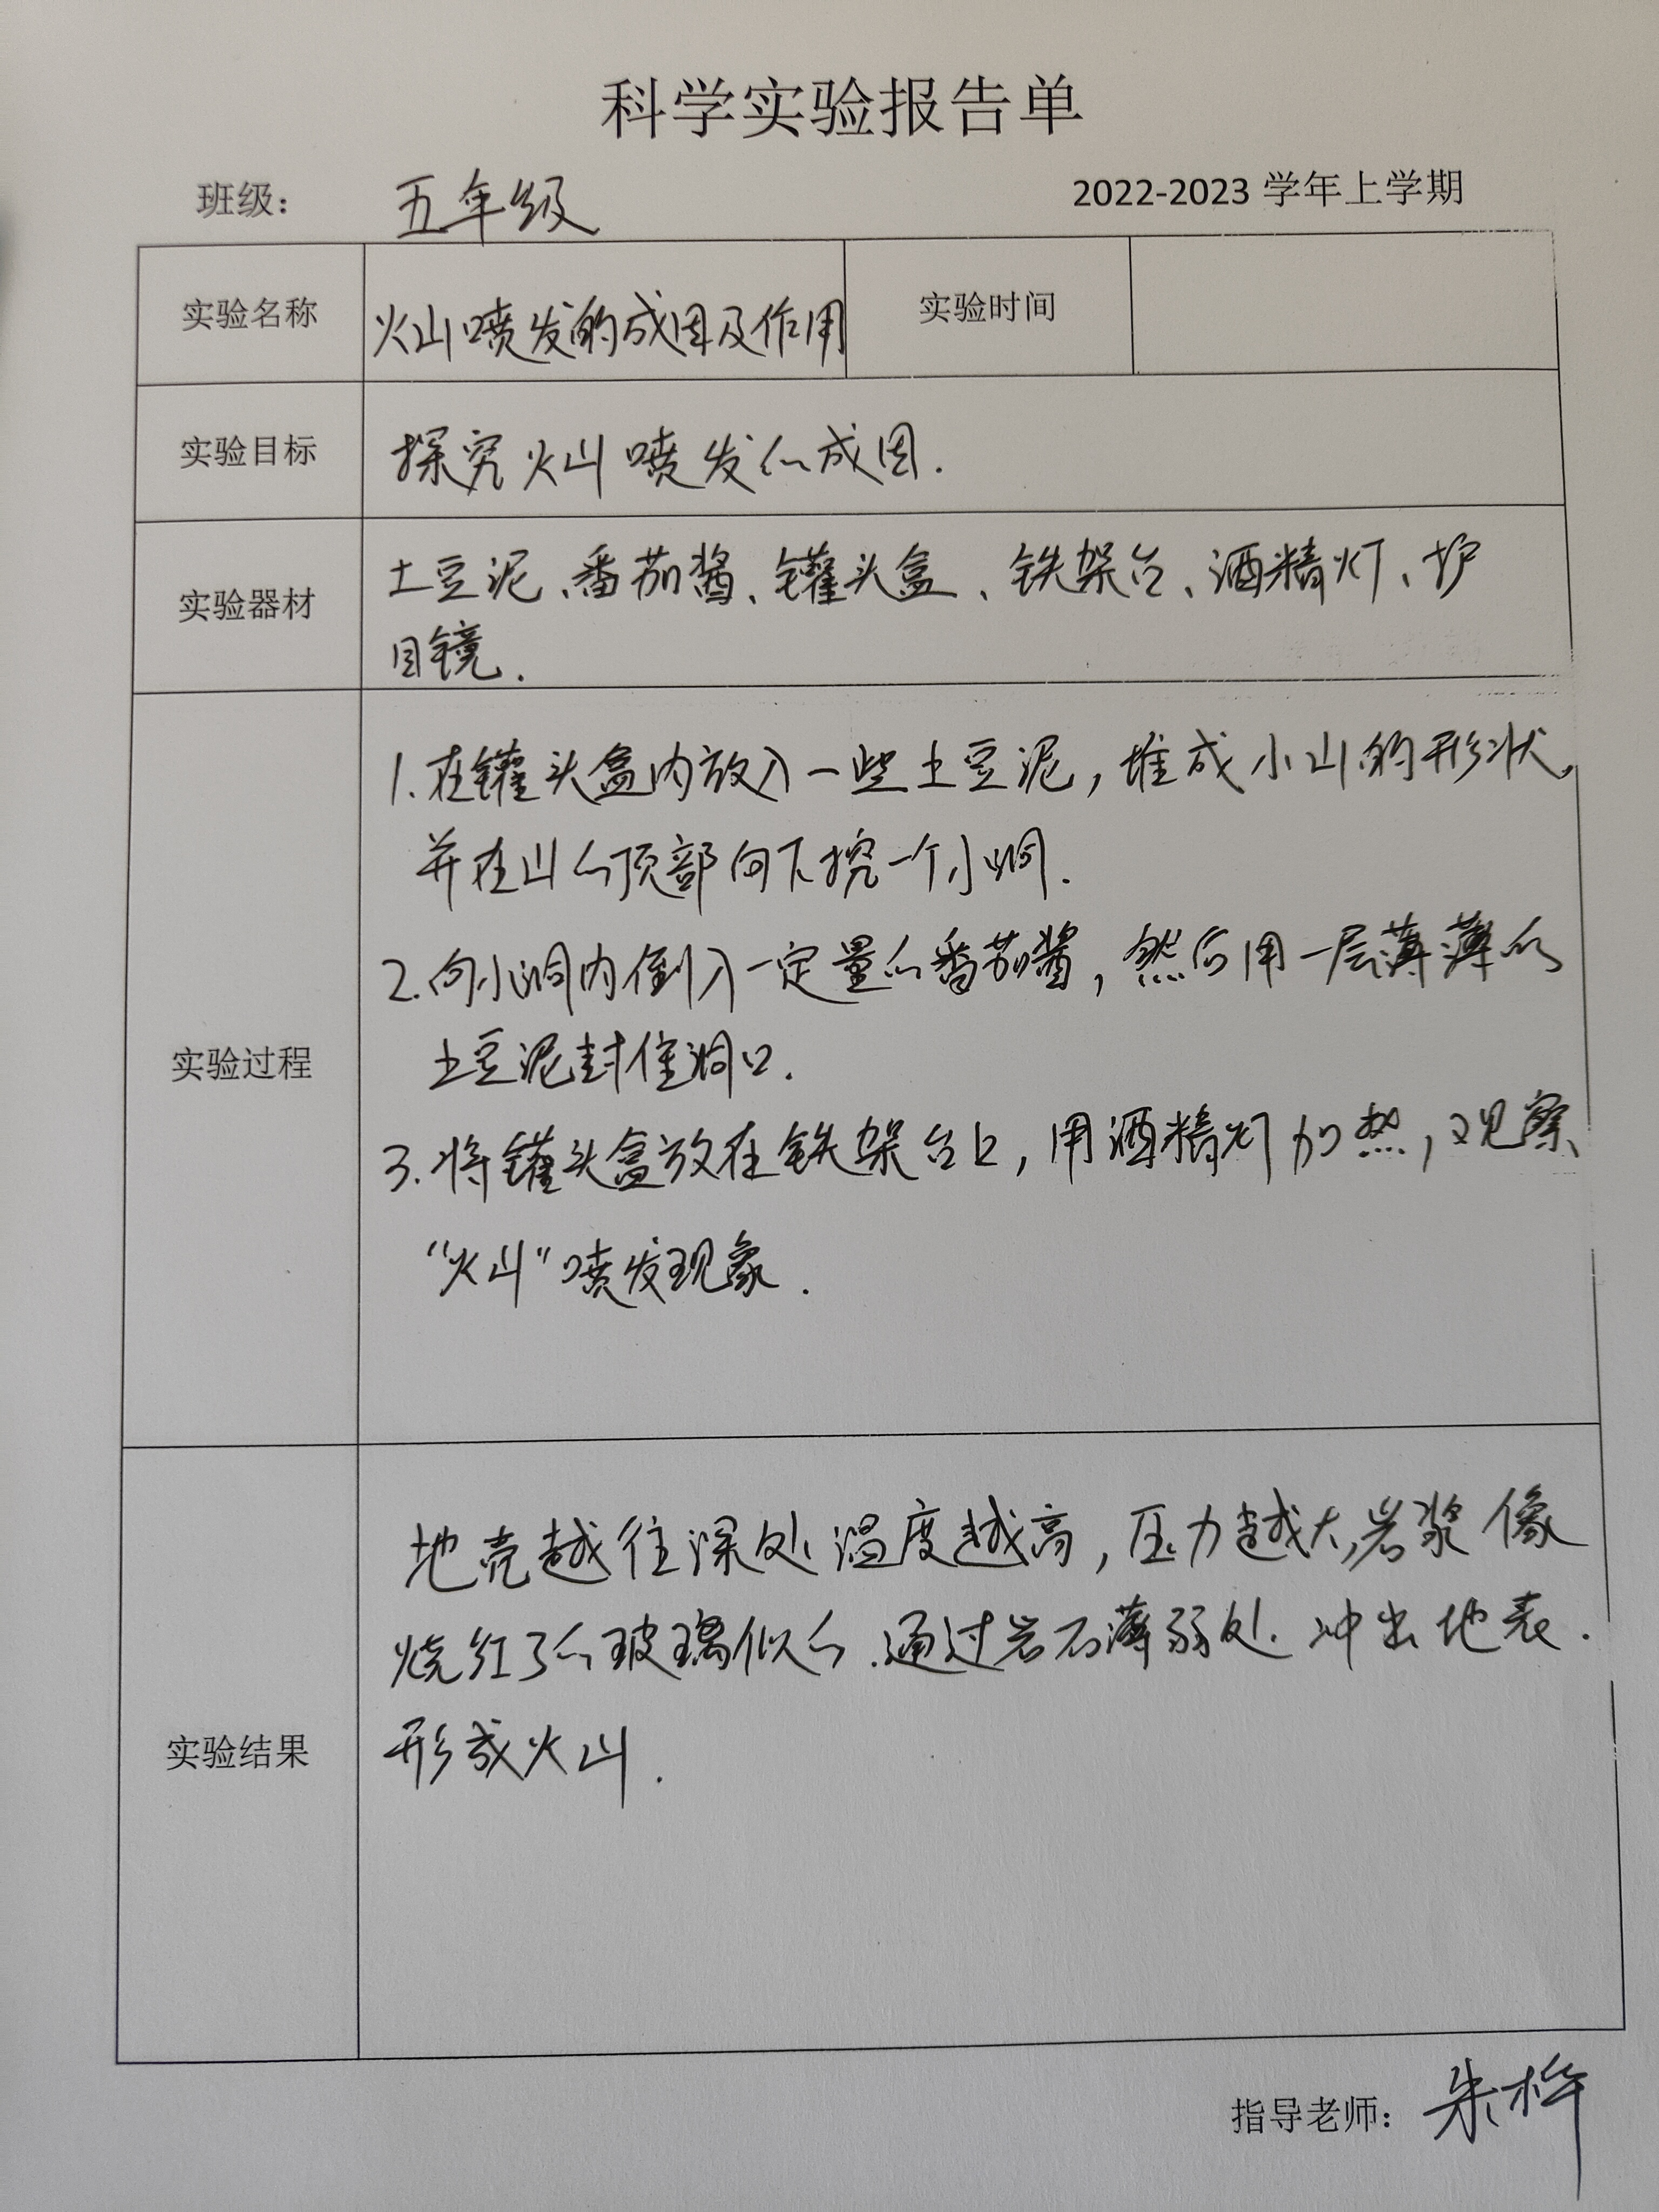 科学实验报告单
班级： 五年级 2022-2023 学年上学期
实验名称 火山喷发的成因及作用 实验时间
实验目标 探究火山喷发的成因.
实验器材 土豆泥、番茄酱、罐头盒、铁架台、酒精灯、护
目镜.
1.在罐头盒内放入一些土豆泥，堆成小山的形状，
并在山的顶部向下挖一个小洞.
2.向小洞内倒入一定量的番茄酱，然后用一层薄薄的
土豆泥封住洞口.
实验过程
3.将罐头盒放在铁架台上，用酒精灯加热，观察
“火山”喷发现象.
地壳越往深处温度越高，压力越大，岩浆像
烧红了的玻璃似的.通过岩石薄弱处.冲出地表.
实验结果 形成火山.
指导老师： 朱